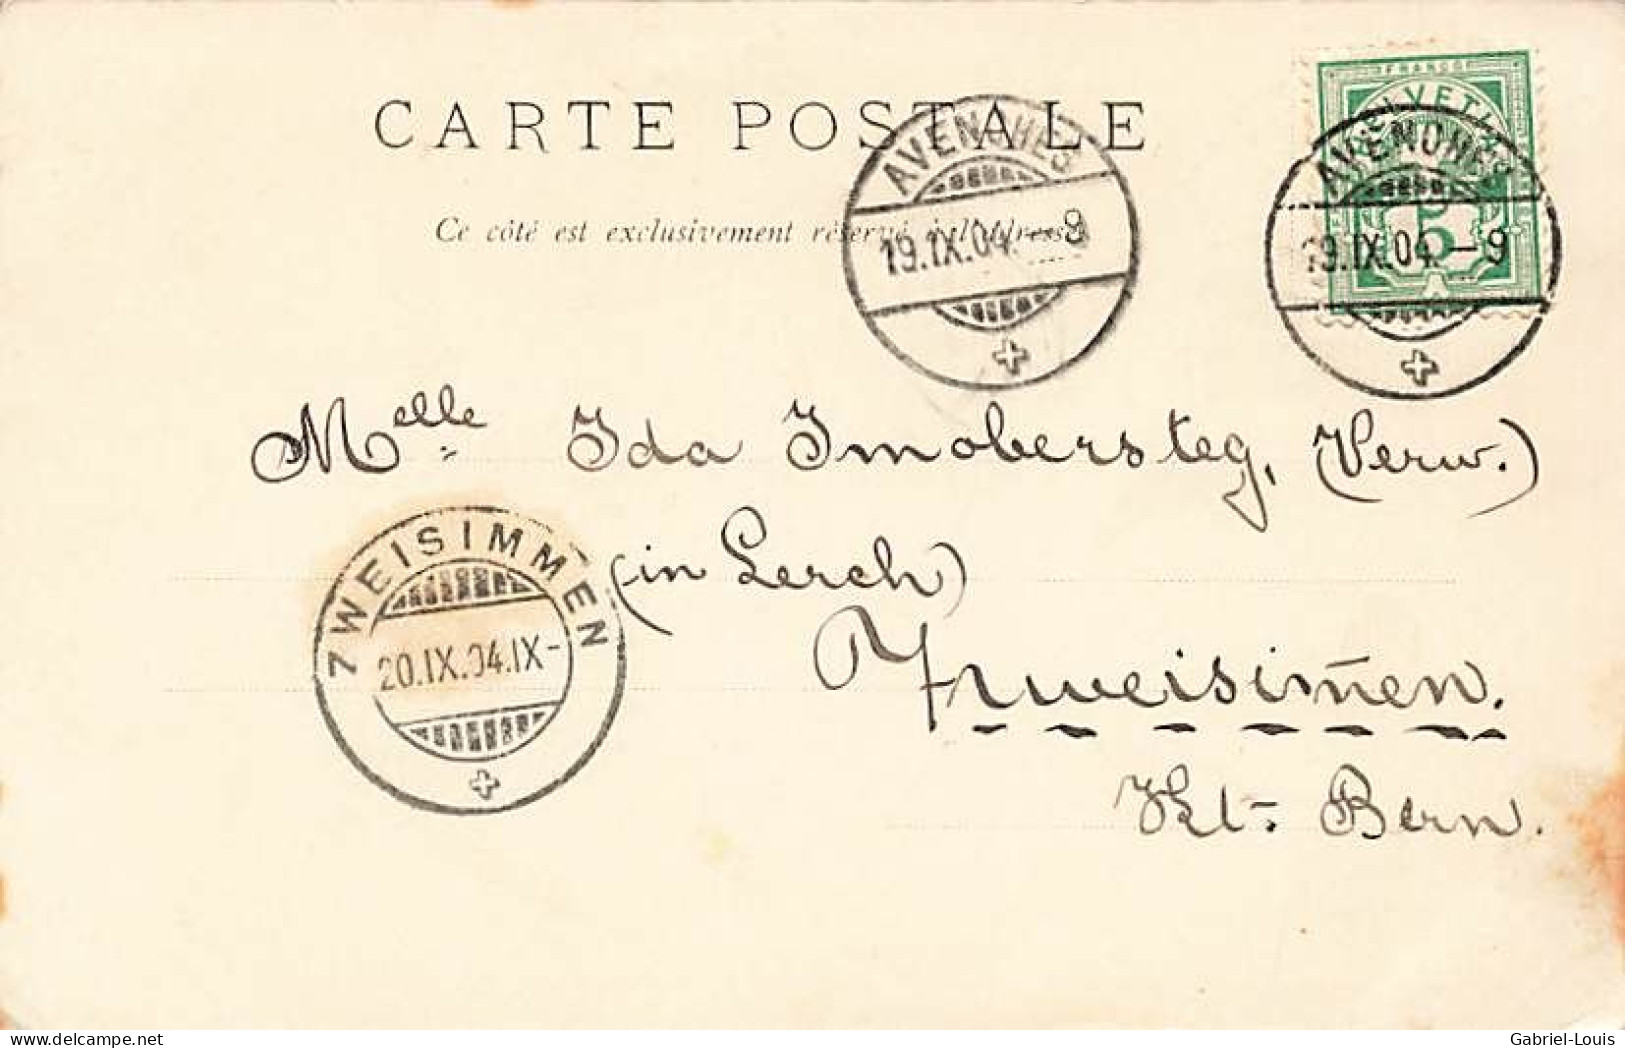 CARTE POSTALE
Ce côté est exclusivement réservé à l'adresse
AVENCHES
19.IX.04.-9
FRANCO
HELVETIA
5
AVENCHES
19.IX.04.-9
Melle Ida Imobersteg, (Verw.)
(in Lerch)
Zweisimmen.
Kt. Bern.
ZWEISIMMEN
20.IX.04.IX-
Gabriel-Louis